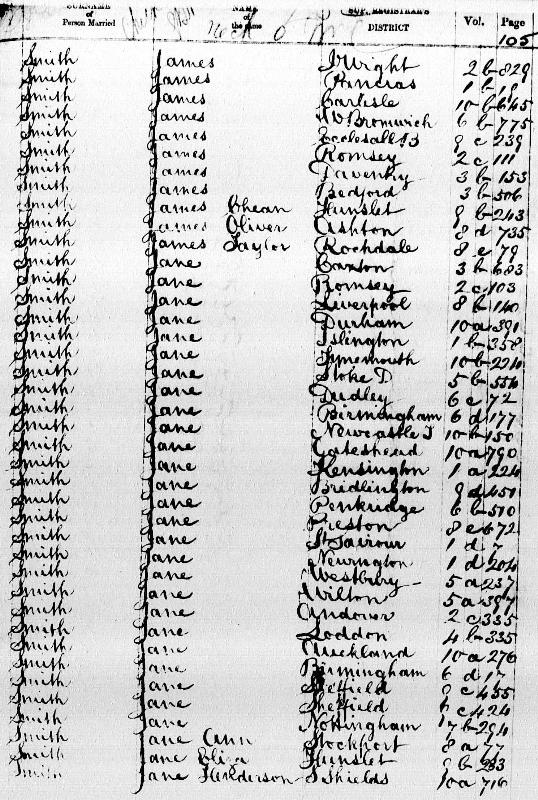 SURNAME of Person Married NAME of the same SUP. REGISTRAR'S DISTRICT Vol. Page
105
Smith James I. Wight 2b 829
Smith James Pancras 1b 18
Smith James Carlisle 10b 645
Smith James W Bromwich 6b 775
Smith James Ecclesall B 9c 239
Smith James Romsey 2c 111
Smith James Daventry 3b 153
Smith James Bedford 3b 506
Smith James Hunslet 9b 243
Smith James Oliver Ashton 8d 735
Smith James Taylor Rochdale 8e 79
Smith Jane Caxton 3b 683
Smith Jane Romsey 2c 103
Smith Jane Liverpool 8b 140
Smith Jane Durham 10a 391
Smith Jane Islington 1b 358
Smith Jane Tynemouth 10b 224
Smith Jane Stoke D 5b 554
Smith Jane Dudley 6c 72
Smith Jane Birmingham 6d 177
Smith Jane Newcastle T 10b 150
Smith Jane Gateshead 10a 790
Smith Jane Kensington 1a 224
Smith Jane Bridlington 9d 451
Smith Jane Penkridge 6b 510
Smith Jane Preston 8e 672
Smith Jane St Saviour 1d 7
Smith Jane Newington 1d 204
Smith Jane Westbury 5a 237
Smith Jane Wilton 5a 397
Smith Jane Andover 2c 335
Smith Jane Loddon 4b 335
Smith Jane Auckland 10a 276
Smith Jane Birmingham 6d 17
Smith Jane Sheffield 9c 455
Smith Jane Sheffield 9c 424
Smith Jane Nottingham 7b 294
Smith Jane Ann Stockport 8a 77
Smith Jane Eliza Hunslet 9b 283
Smith Jane Henderson S Shields 10a 716